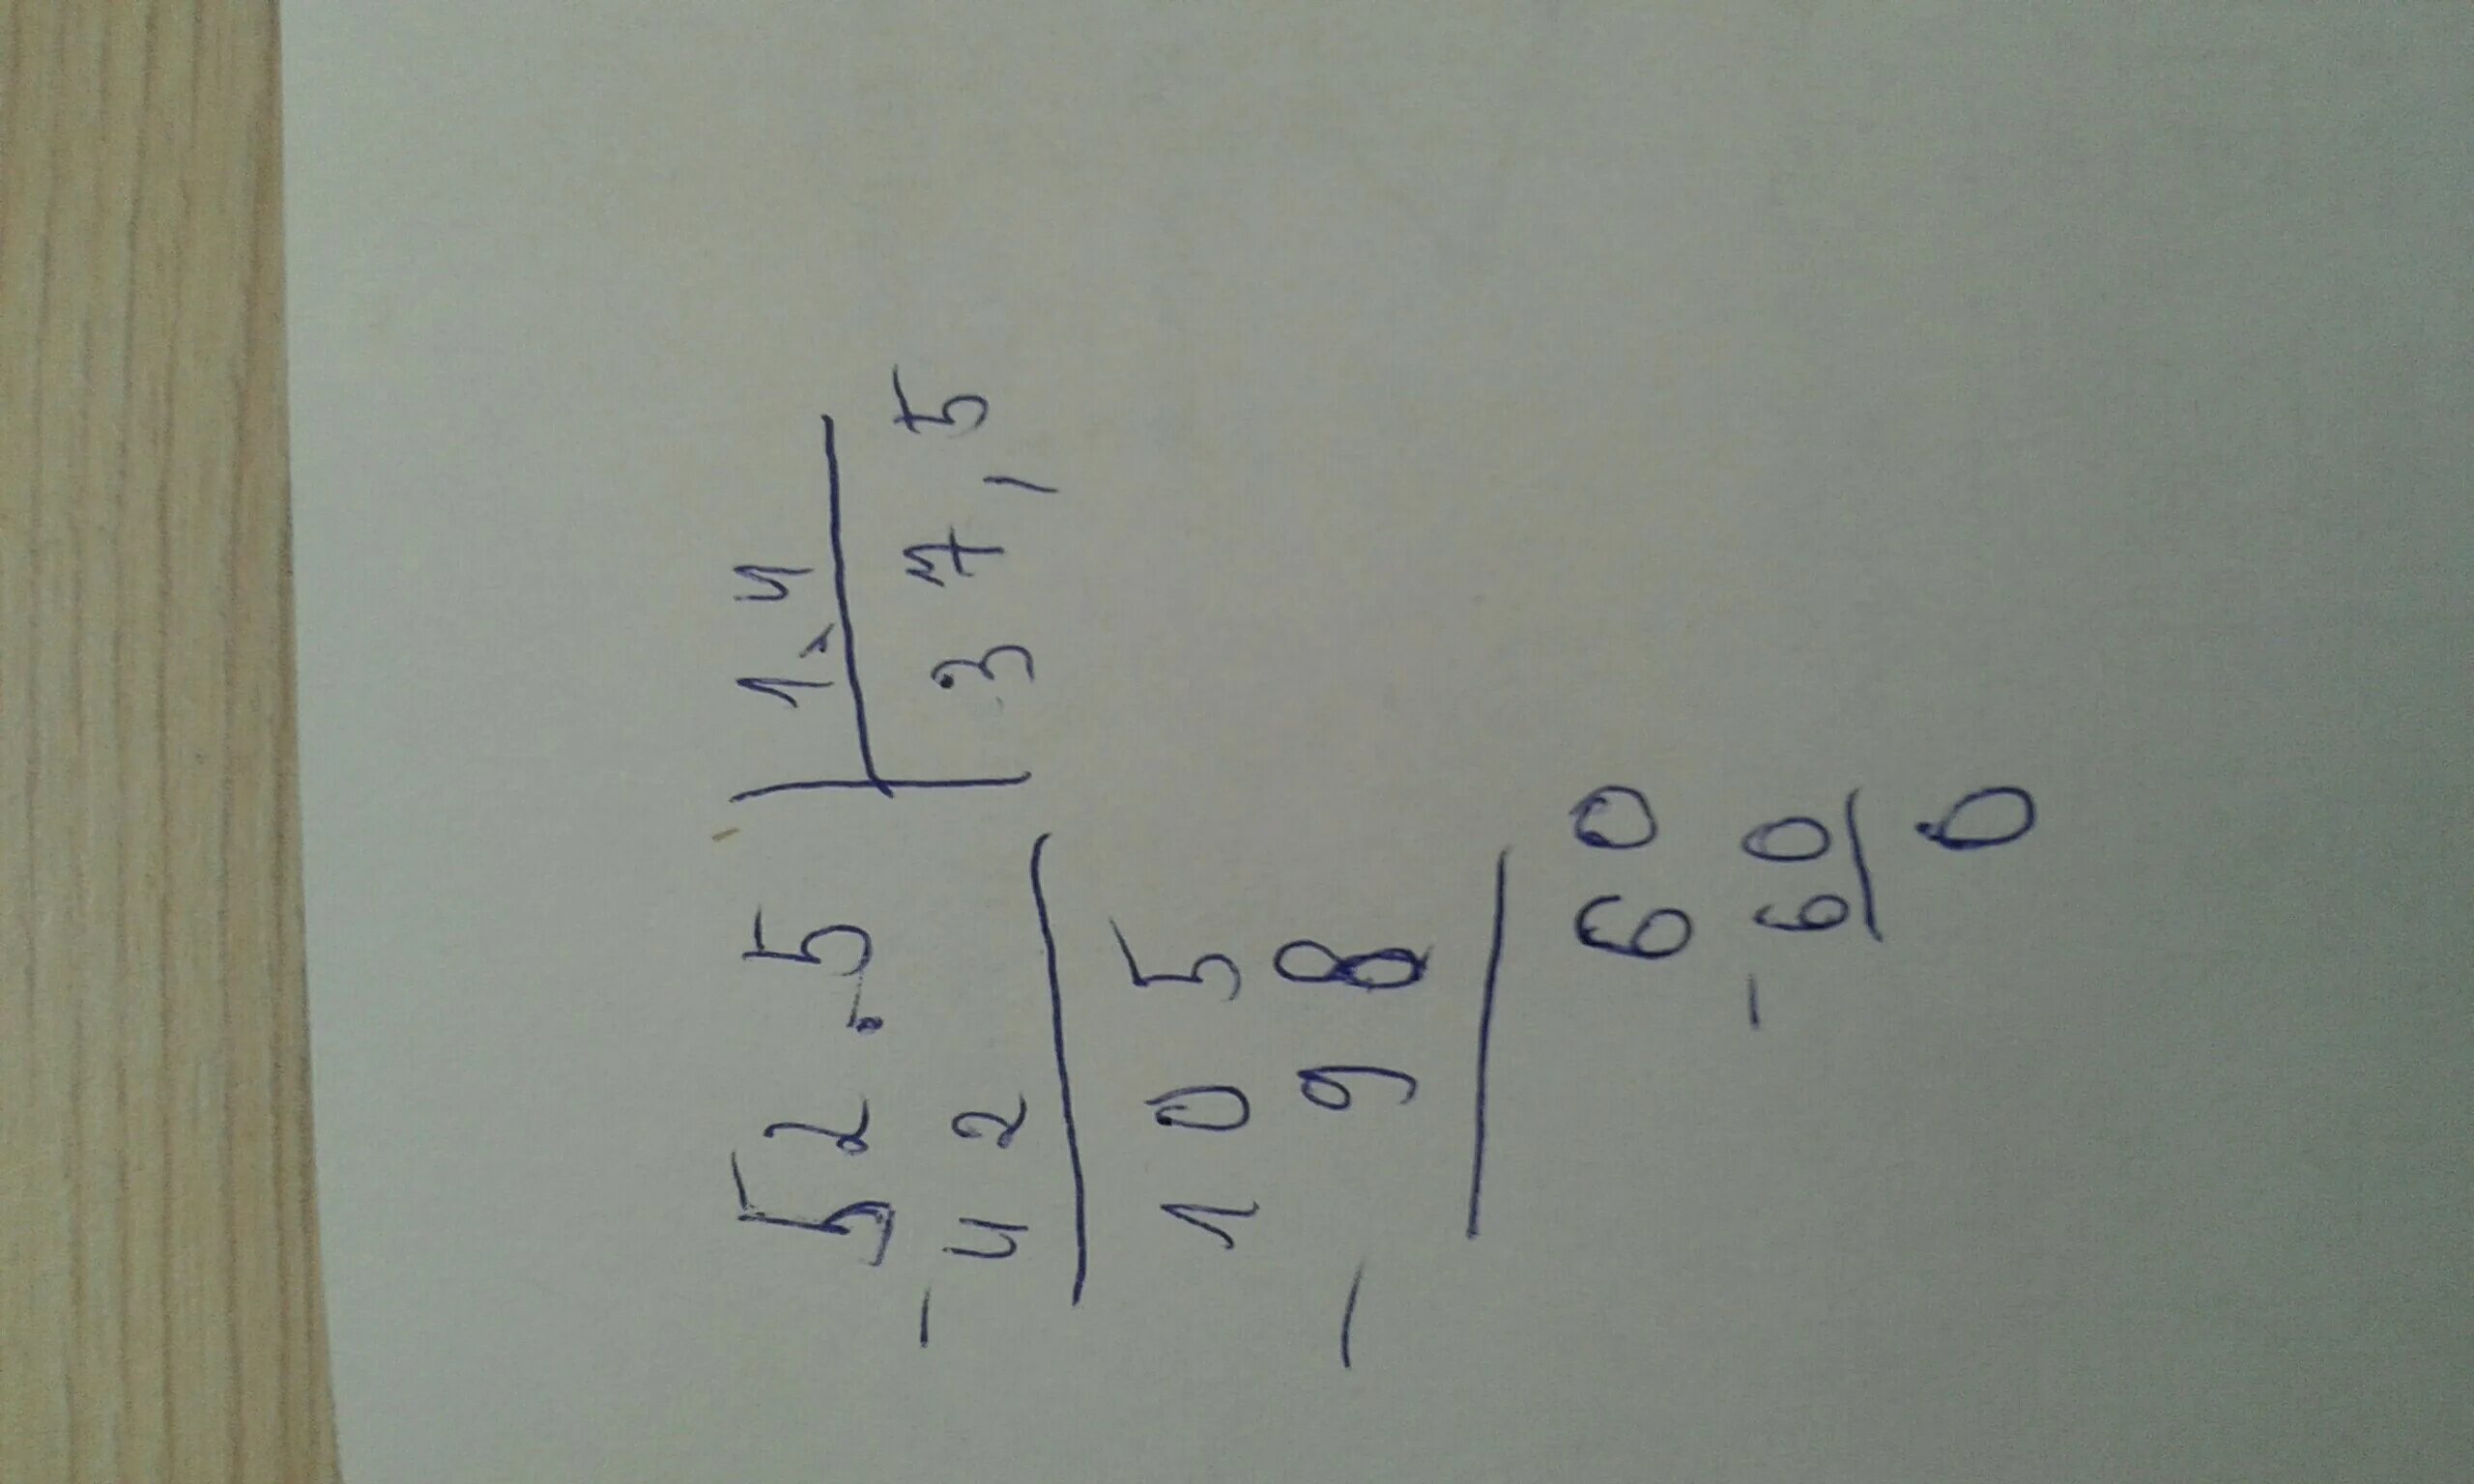 52.5 | 1,4
- 42 | 37,5
105
- 98
60
- 60
0